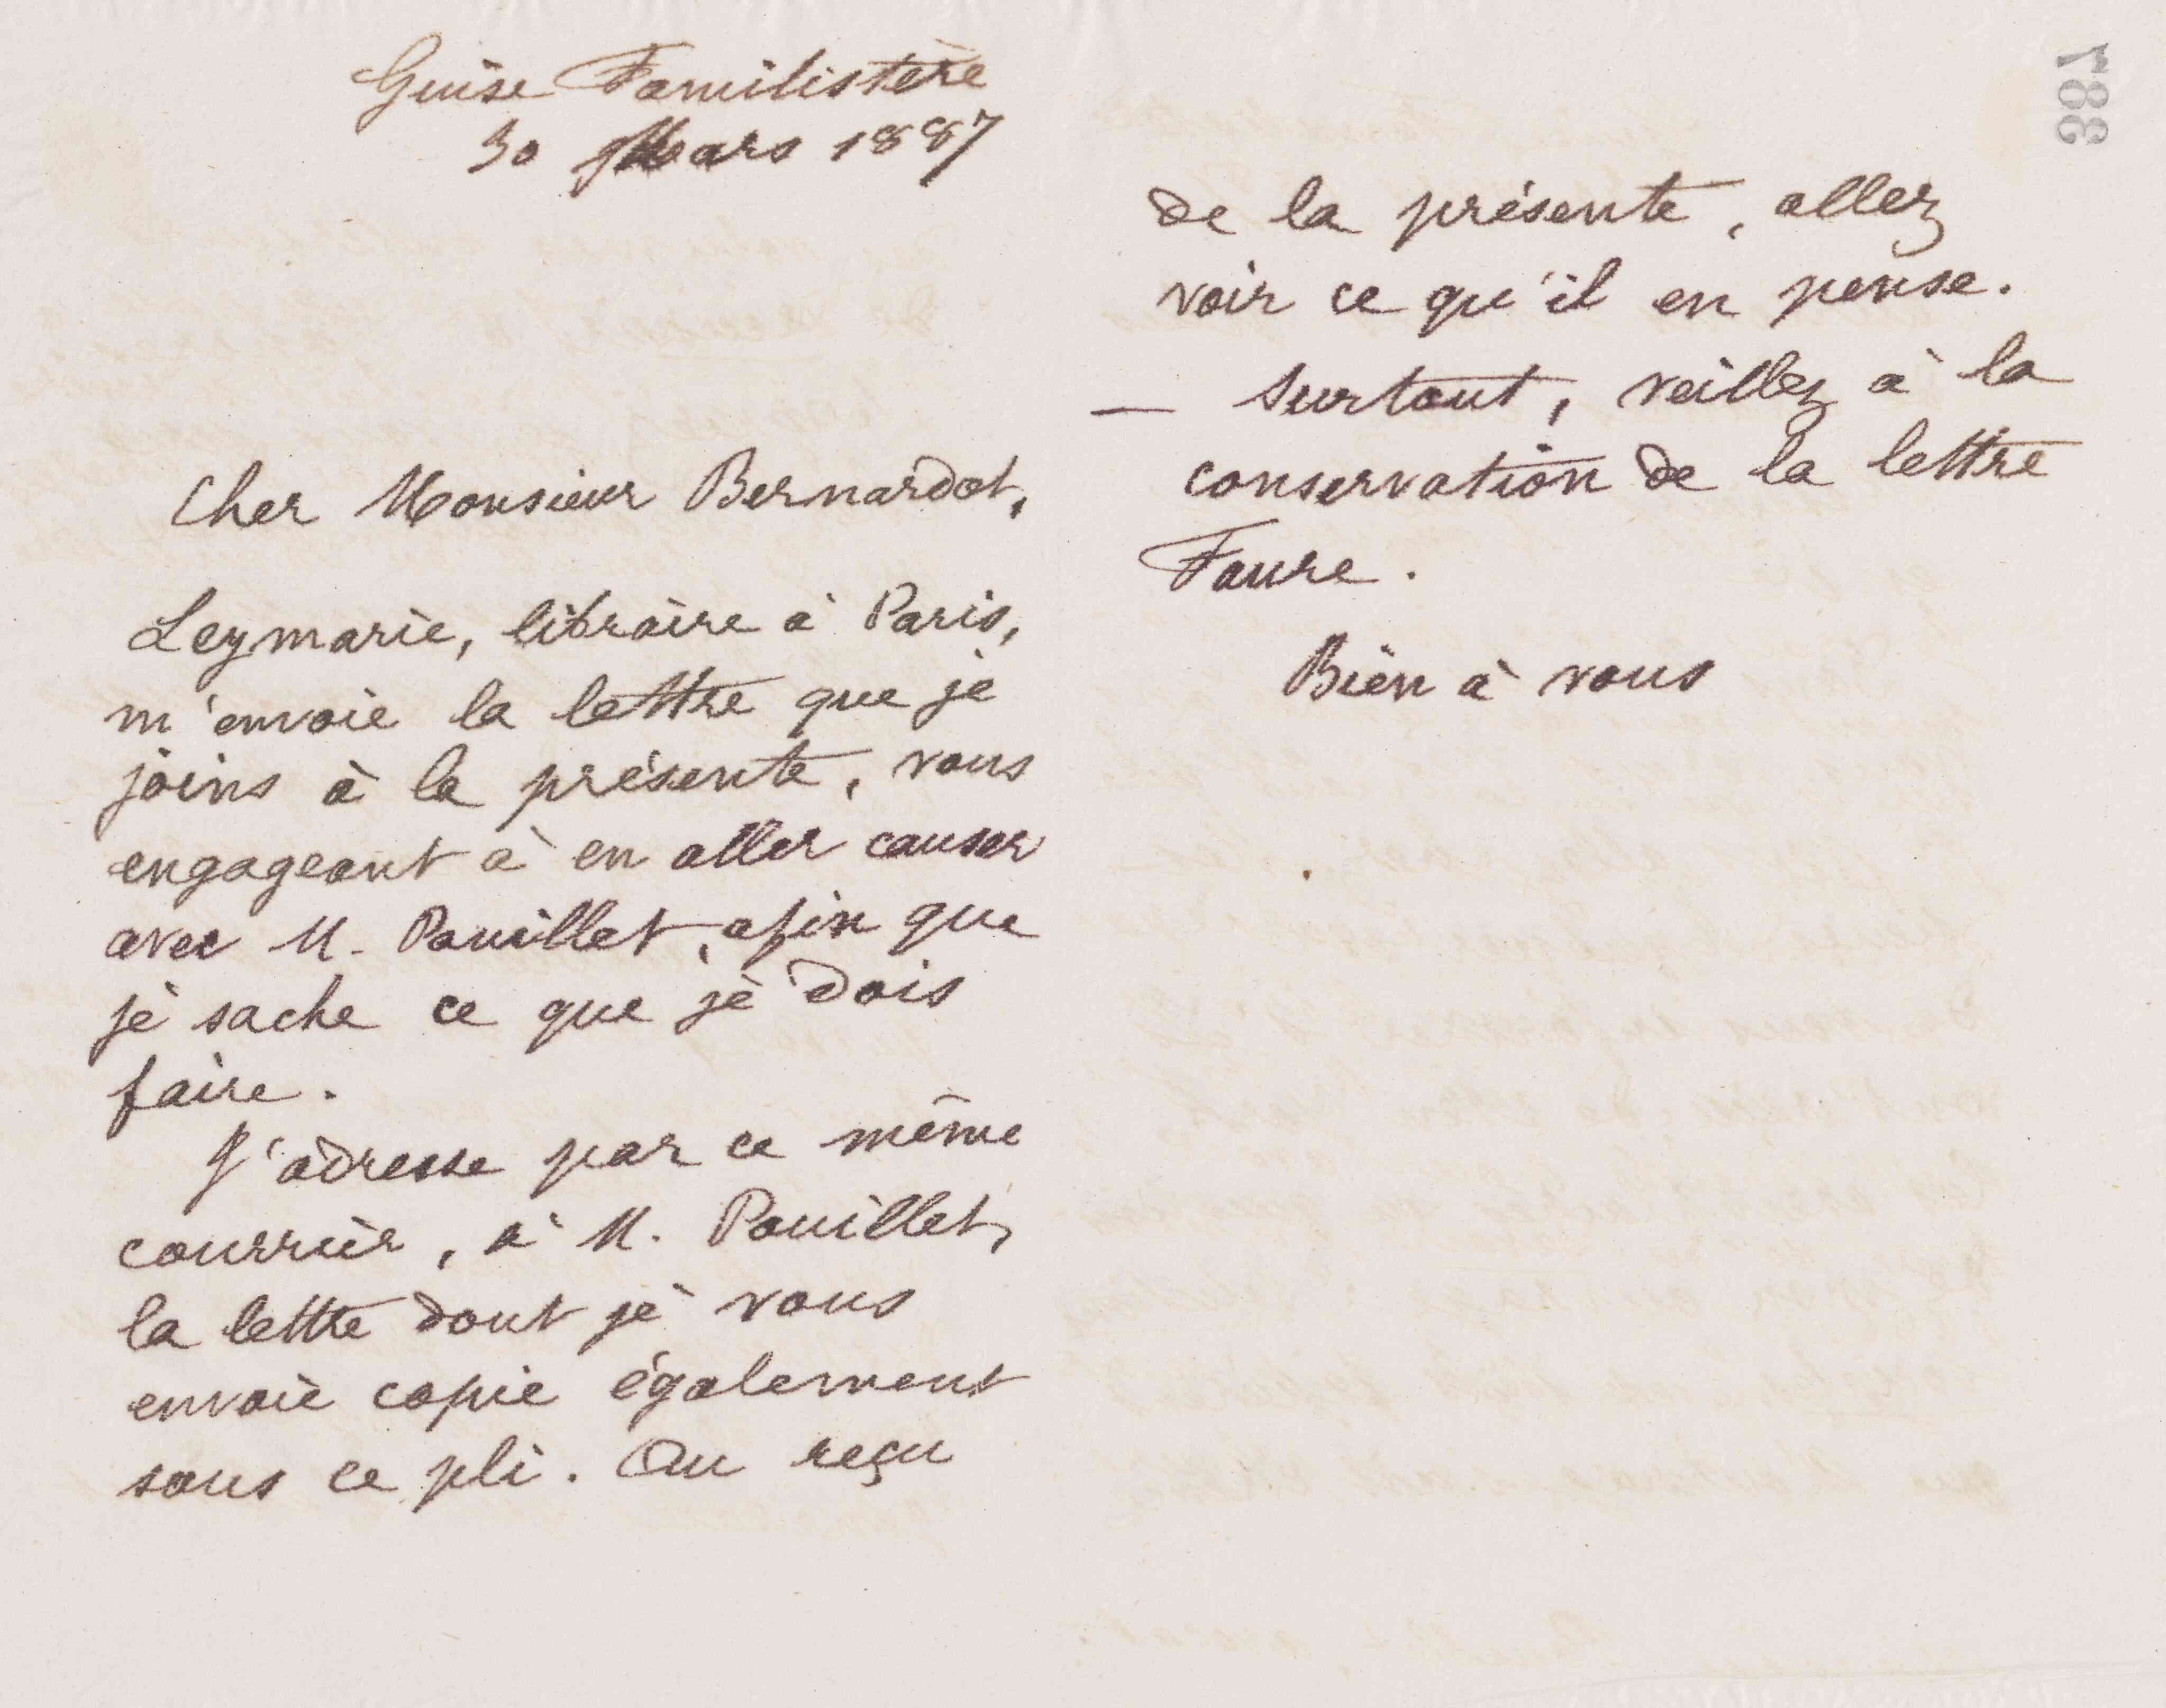 Guise Familistère
30 Mars 1887
Cher Monsieur Bernardot,
Leymarie, libraire à Paris,
m'envoie la lettre que je
joins à la présente, vous
engageant à en aller causer
avec M. Pouillet, afin que
je sache ce que je dois
faire.
J'adresse par ce même
courrier, à M. Pouillet,
la lettre dont je vous
envoie copie également
sous ce pli. Au reçu
387
de la présente, allez
voir ce qu'il en pense.
— Surtout, veillez à la
conservation de la lettre
Faure.
Bien à vous